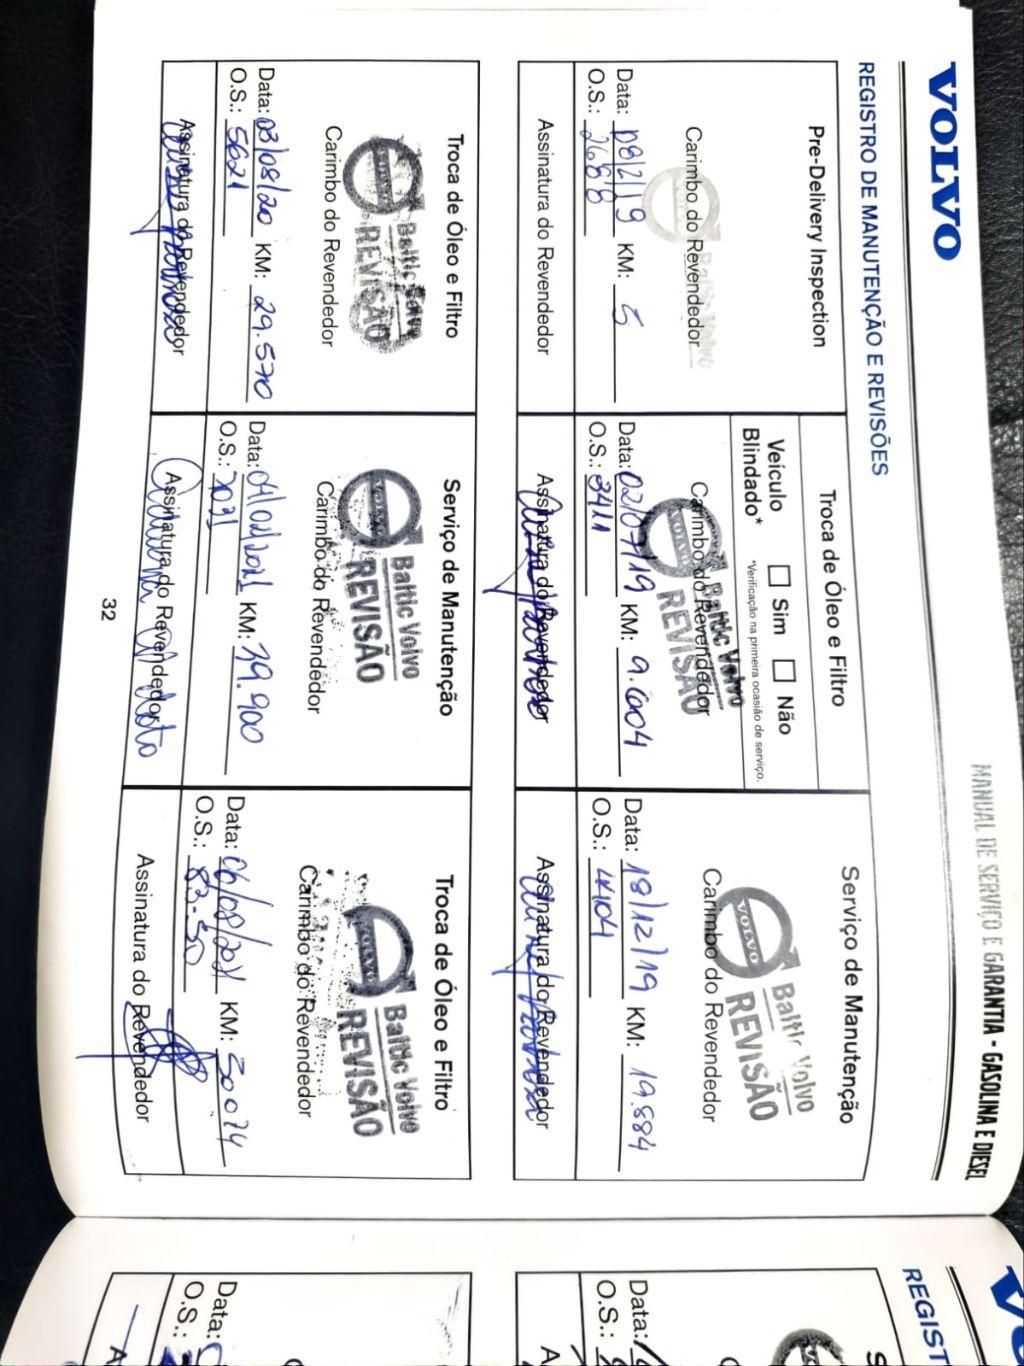 VOLVO
MANUAL DE SERVIÇO E GARANTIA - GASOLINA E DIESEL
REGISTRO DE MANUTENÇÃO E REVISÕES
Pre-Delivery Inspection
Baltic Volvo
Carimbo do Revendedor
Data: 08/2/19 KM: 5
O.S.: 2688
Assinatura do Revendedor
Troca de Óleo e Filtro
Veículo Blindado* Sim Não
*Verificação na primeira ocasião de serviço.
VOLVO
Baltic Volvo
REVISÃO
Carimbo do Revendedor
Data: 02/07/19 KM: 9.604
O.S.: 3411
Assinatura do Revendedor
Serviço de Manutenção
VOLVO
Baltic Volvo
REVISÃO
Carimbo do Revendedor
Data: 18/12/19 KM: 19.884
O.S.: 4404
Assinatura do Revendedor
Troca de Óleo e Filtro
Baltic Volvo
REVISÃO
Carimbo do Revendedor
Data: 03/08/20 KM: 29.570
O.S.: 5621
Assinatura do Revendedor
Serviço de Manutenção
VOLVO
Baltic Volvo
REVISÃO
Carimbo do Revendedor
Data: KM: 39.900
O.S.: 7031
Assinatura do Revendedor
Troca de Óleo e Filtro
VOLVO
Baltic Volvo
REVISÃO
Carimbo do Revendedor
Data: 06/08/2021 KM: 50074
O.S.:
Assinatura do Revendedor
32
REGIST
Data:
O.S.:
Data:
O.S.: